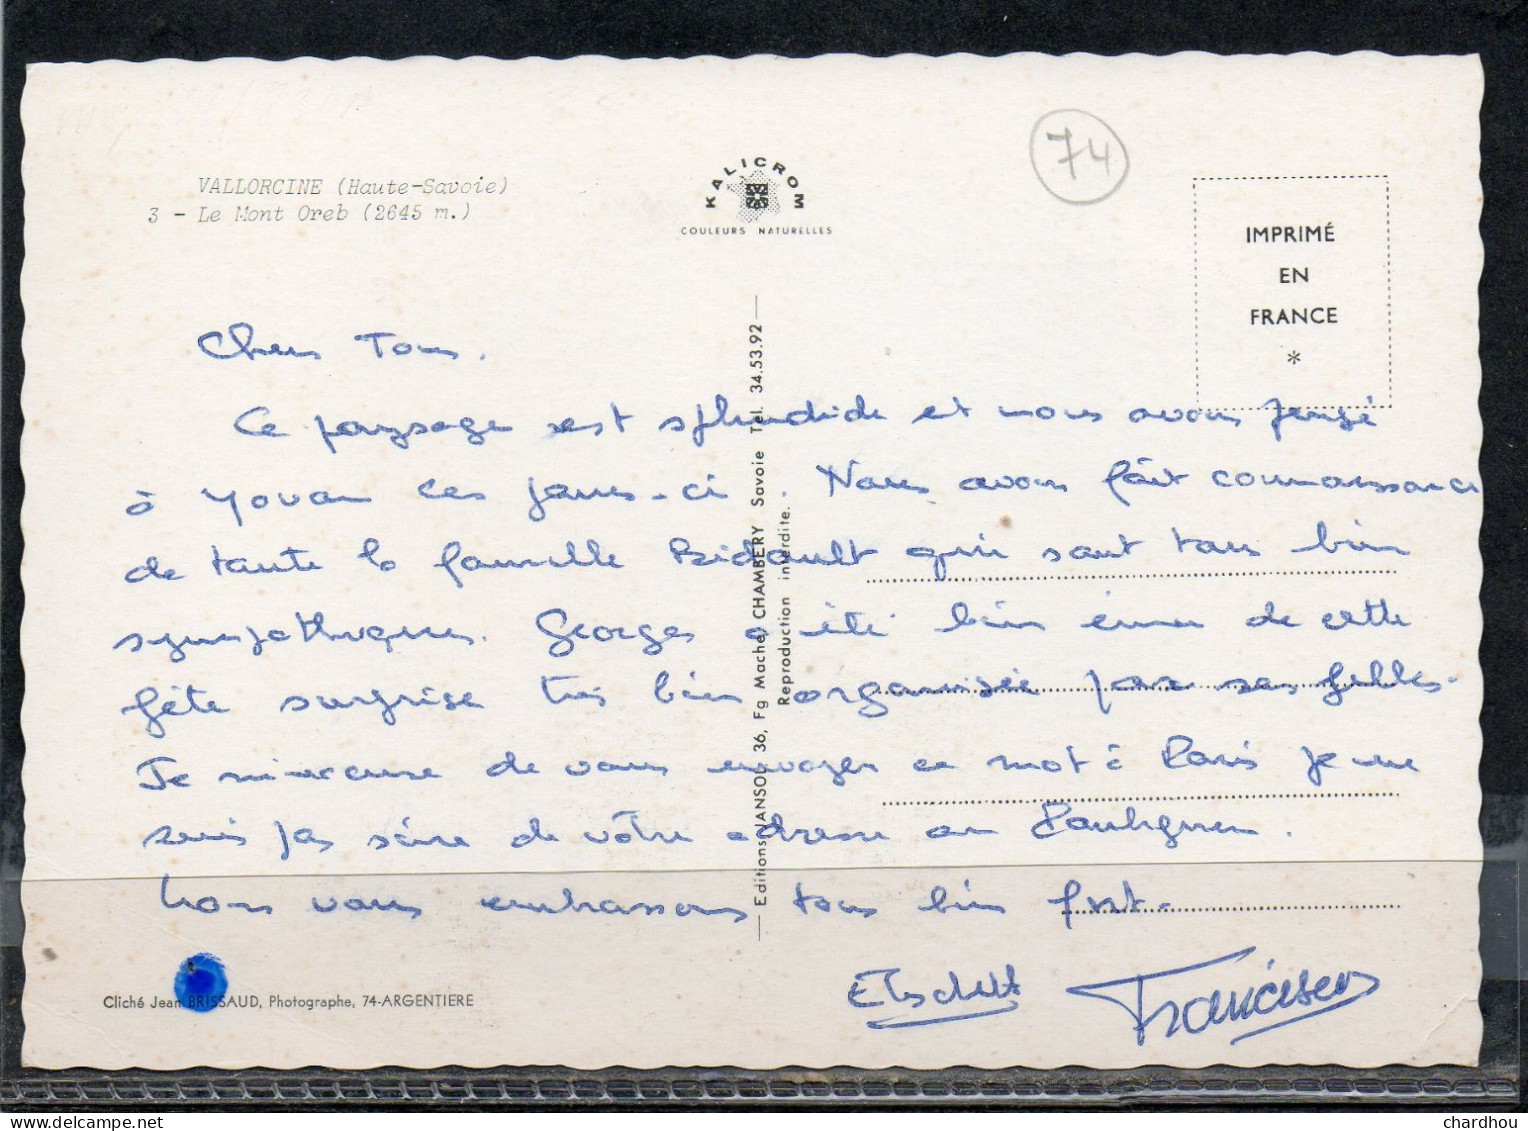 VALLORCINE (Haute-Savoie)
3 - Le Mont Oreb (2645 m.)
KALICROM
COULEURS NATURELLES
74
IMPRIMÉ
EN
FRANCE
*
Chers Tous.
Ce paysage est splendide et nous avons pensé
à Yovan ces jours-ci. Nous avons fait connaissance
de toute la famille Bidault qui sont tous bien
sympathiques. Georges a été bien ému de cette
fête surprise très bien organisée par ses filles.
Je m'excuse de vous envoyer ce mot à Paris je ne
suis pas sûre de votre adresse en
Nous vous embrassons tous bien fort.
Francisco
Editions JANSOL 36, Fg Maché, CHAMBERY Savoie Tél. 34.53.92
Reproduction interdite.
Cliché Jean BRISSAUD, Photographe, 74-ARGENTIERE
chardhou